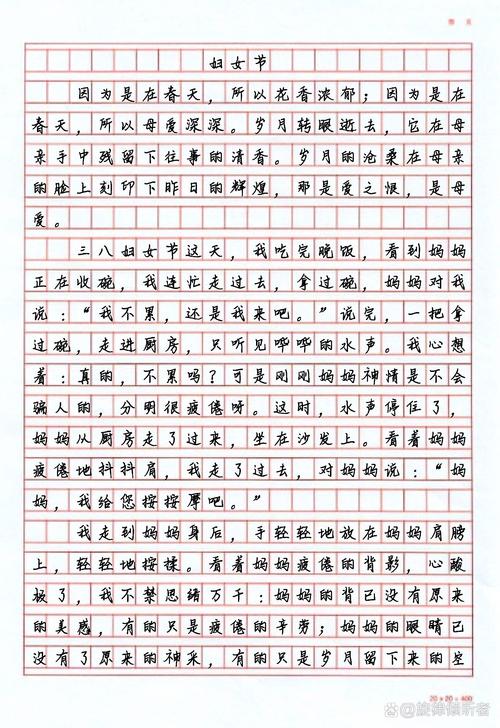 妇女节
因为是在春天，所以花香浓郁；因为是在
春天，所以母爱深深。岁月转眼逝去，它在母
亲手中残留下往事的清香。岁月的沧桑在母亲
的脸上刻印下昨日的辉煌，那是爱之恨，是母
爱。
三八妇女节这天，我吃完晚饭，看到妈妈
正在收碗，我连忙走过去，拿过碗，妈妈对我
说：“我不累，还是我来吧。”说完，一把拿
过碗，走进厨房，只听见哗哗的水声。我心想
着：真的，不累吗？可是刚刚妈妈神情是不会
骗人的，分明很疲倦呀。这时，水声停住了，
妈妈从厨房走了过来，坐在沙发上。看着妈妈
疲倦地抖抖肩，我走了过去，对妈妈说：“妈
妈，我给您按按摩吧。”
我走到妈妈身后，手轻轻地放在妈妈肩膀
上，轻轻地按揉。看着妈妈疲倦的背影，心酸
极了，我不禁思绪万千：妈妈的背已没有原来
的美感，有的只是疲倦的辛劳；妈妈的眼睛已
没有了原来的神采，有的只是岁月留下来的空
20×20=400
@旋律倾听者